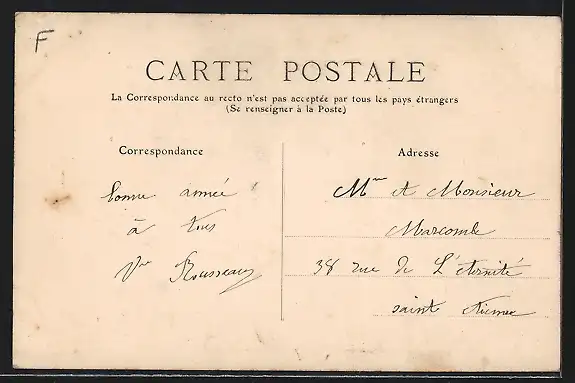 F
CARTE POSTALE
La Correspondance au recto n'est pas acceptée par tous les pays étrangers
(Se renseigner à la Poste)
Correspondance
Adresse
bonne année
à tous
Vve Rousseau
Mme et Monsieur
Marcombe
38 rue de L'éternité
saint Etienne